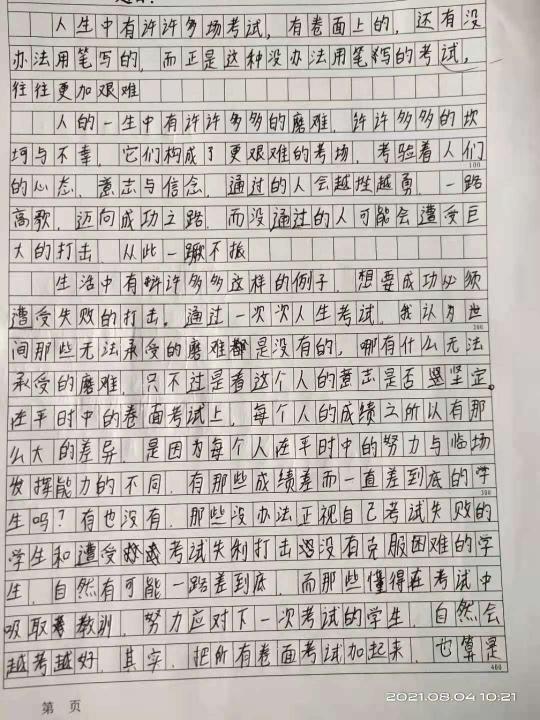 人生中有许许多多场考试，有卷面上的，还有没
办法用笔写的，而正是这种没办法用笔写的考试，
往往更加艰难
人的一生中有许许多多的磨难，许许多多的坎
坷与不幸，它们构成了更艰难的考场，考验着人们
100
的心态，意志与信念，通过的人会越挫越勇，一路
高歌，迈向成功之路，而没通过的人可能会遭受巨
大的打击，从此一蹶不振
生活中有许许多多这样的例子，想要成功必须
遭受失败的打击。通过一次次人生考试，我认为世
200
间那些无法承受的磨难都是没有的，哪有什么无法
承受的磨难，只不过是看这个人的意志是否坚定。
在平时中的卷面考试上，每个人的成绩之所以有那
么大的差异，是因为每个人在平时中的努力与临场
发挥能力的不同，有那些成绩差而一直差到底的学
300
生吗？有也没有，那些没办法正视自己考试失败的
学生和遭受考试失利打击没有克服困难的学
生，自然有可能一路差到底，而那些懂得在考试中
吸取教训，努力应对下一次考试的学生，自然会
越考越好，其实，把所有卷面考试加起来，也算是
400
第 页
2021.08.04 10:21